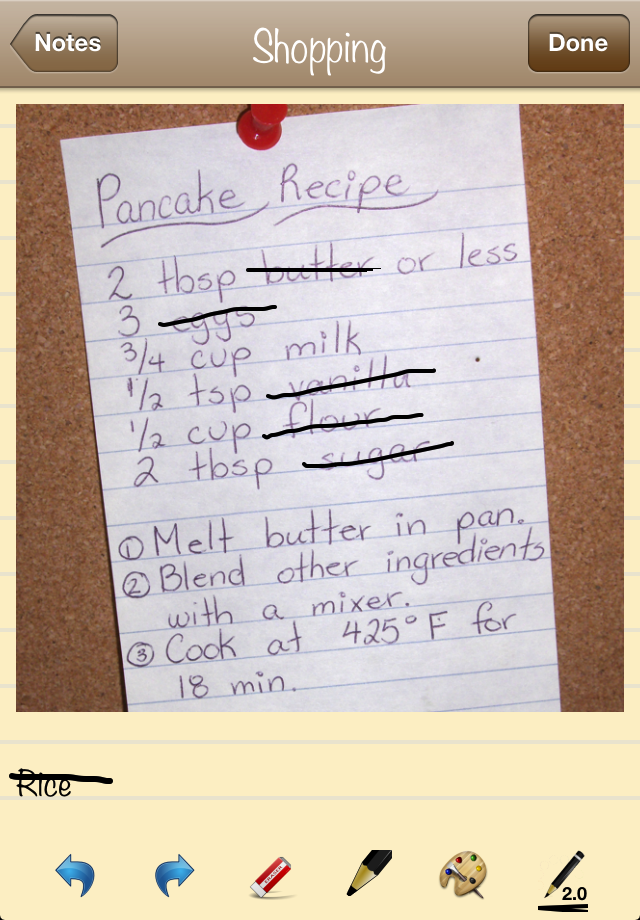 Notes
Shopping
Done
Pancake Recipe
2 tbsp butter or less
3 eggs
3/4 cup milk
1/2 tsp vanilla
1/2 cup flour
2 tbsp sugar
① Melt butter in pan.
② Blend other ingredients
with a mixer.
③ Cook at 425° F for
18 min.
Rice
ERASER
2.0